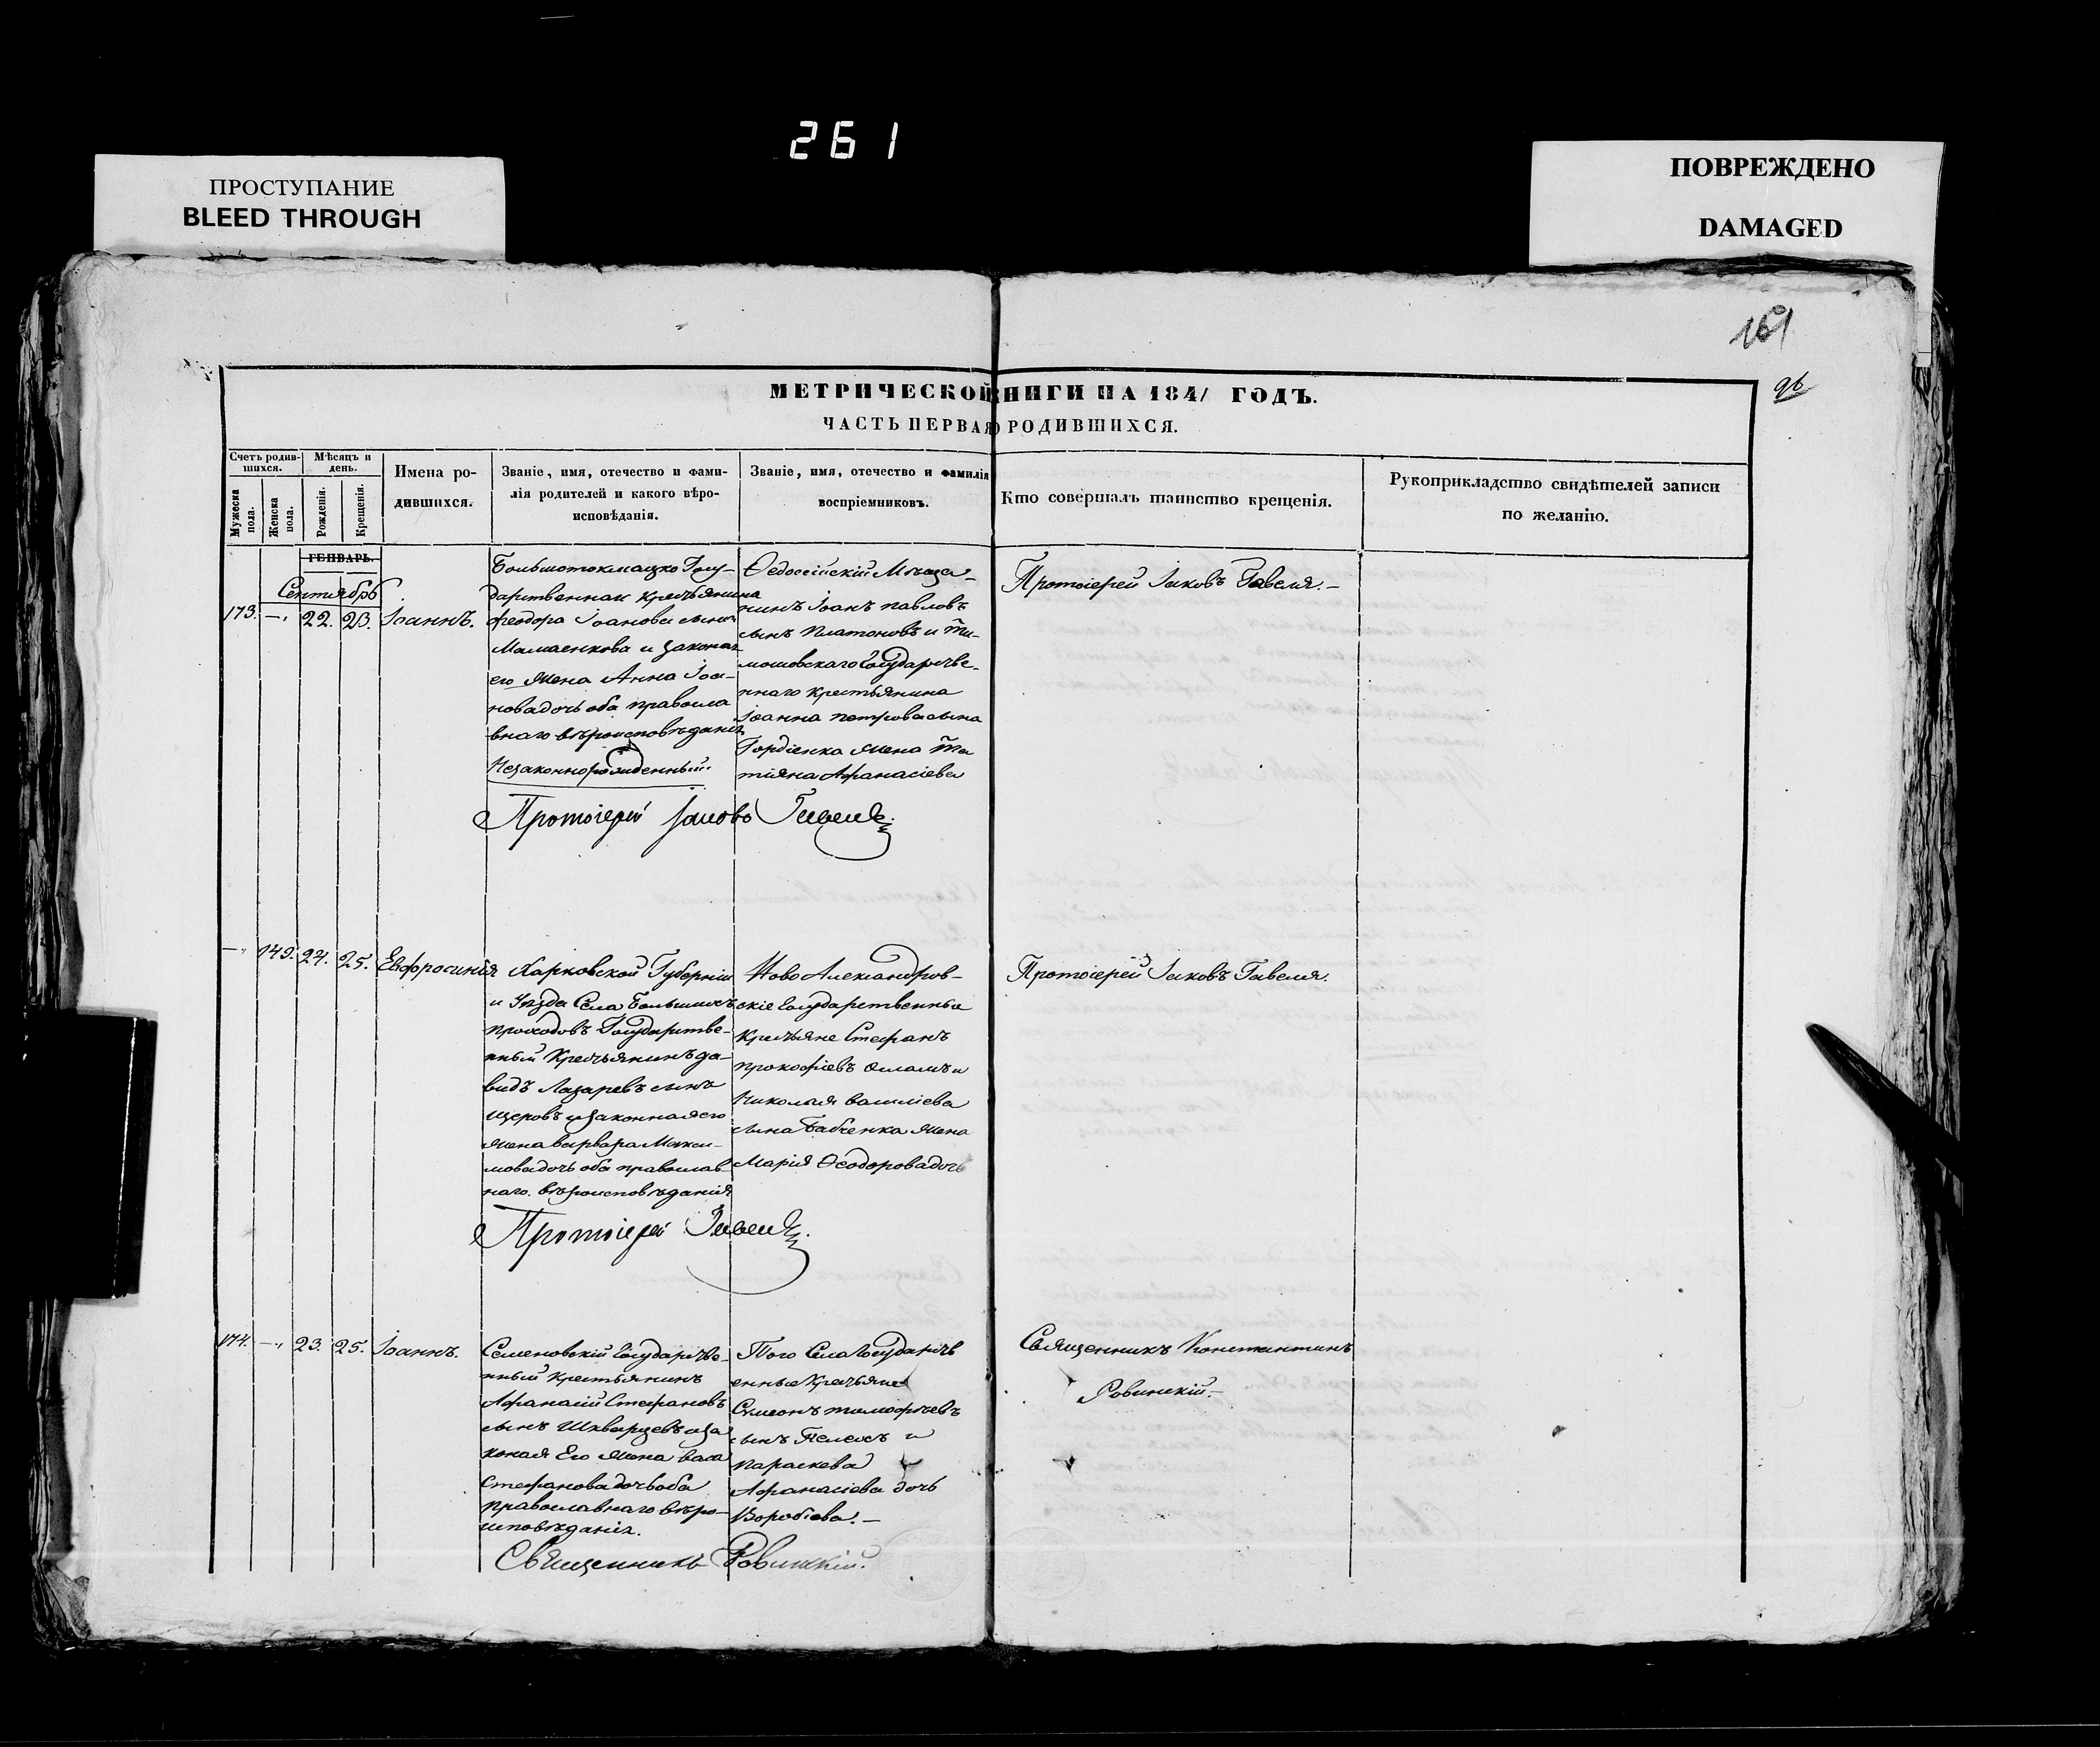 261
ПРОСТУПАНИЕ
BLEED THROUGH
ПОВРЕЖДЕНО
DAMAGED
161
96
МЕТРИЧЕСКОЙ КНИГИ НА 1841 ГОДЪ.
ЧАСТЬ ПЕРВАЯ О РОДИВШИХСЯ.
Счетъ родив-
шихся.
Мужеска пола.
Женска пола.
Мѣсяцъ и
день.
Рожденія.
Крещенія.
Имена ро-
дившихся.
Званіе, имя, отечество и фами-
лія родителей и какого вѣро-
исповѣданія.
Званіе, имя, отечество и фамилія
воспріемниковъ.
Кто совершалъ таинство крещенія.
Рукоприкладство свидѣтелей записи
по желанію.
ГЕНВАРЬ.
Сентябрь
173. — 22. 23. Іоаннъ.
Большотокмацко Госу-
дарственнаи крестьянина
феодора Іоанова сынъ
Мамаенкова и законая
его жена Анна Іоа-
нова дочь оба правосла
внаго вѣроисповѣданія
Незаконнорожденный.
Ѳедосійскій Мѣща-
нинъ Іоанъ павловъ
сынъ Платоновъ и Ти-
мошовскаго Государстве-
ннаго крестьянина
іоанна петрова сына
Гордіенка жена Та
тіяна Афанасіева
Протоіерей Іаковъ Гавеля.—
Протоіерей Іаковъ Гавеля
— 149. 24. 25. Евфросинія
Харковской Губерніи
и Уѣзда Села Большихъ
проходовъ Государстве-
нный Крестьянинъ да-
видъ Лазаревъ сынъ
Щеровъ и законная его
жена варвара Макси-
мова дочь оба православ
наго. вѣроисповѣданія
Ново Александров-
скіе Государственные
Крестьяне Стефанъ
прокофіевъ и
Николая василіева
сына Бабченка жена
Марія Ѳеодорова дочь
Протоіерей Іаковъ Гавеля.
Протоіерей Гавеля
174. — 23. 25. Іоаннъ.
Семеновскій Государстве-
нный крестьянинъ
Афанасій Стефановъ
сынъ Шкварцевъ и за
коная Его жена васса
Стефанова дочь оба
православнаго вѣро-
исповѣданія.
Того Села Государств
енные Крестьяне
Симеонъ тимофѣевъ
сынъ и
параскева
Афанасіева дочь
Воробіова.—
Священникъ Константинъ
Ровинскій.—
Священникъ Ровинскій.